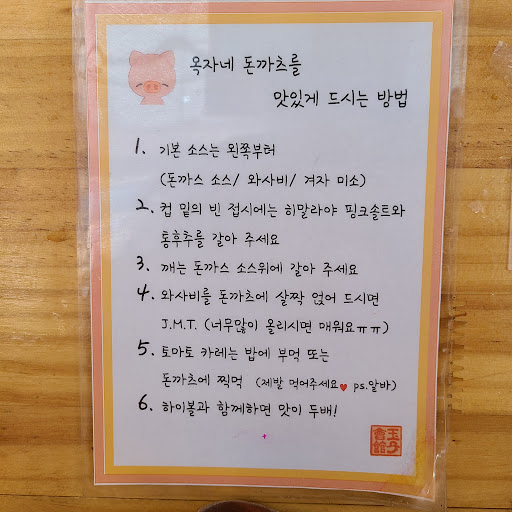 옥자네 돈까츠를
맛있게 드시는 방법
1. 기본 소스는 왼쪽부터
(돈까스 소스/ 와사비/ 겨자 미소)
2. 컵 밑의 빈 접시에는 히말라야 핑크솔트와
통후추를 갈아 주세요
3. 깨는 돈까스 소스위에 갈아 주세요
4. 와사비를 돈까츠에 살짝 얹어 드시면
J.M.T. (너무많이 올리시면 매워요ㅠㅠ)
5. 토마토 카레는 밥에 부먹 또는
돈까츠에 찍먹 (제발 먹어주세요♥ ps.알바)
6. 하이볼과 함께하면 맛이 두배!
玉子
會館